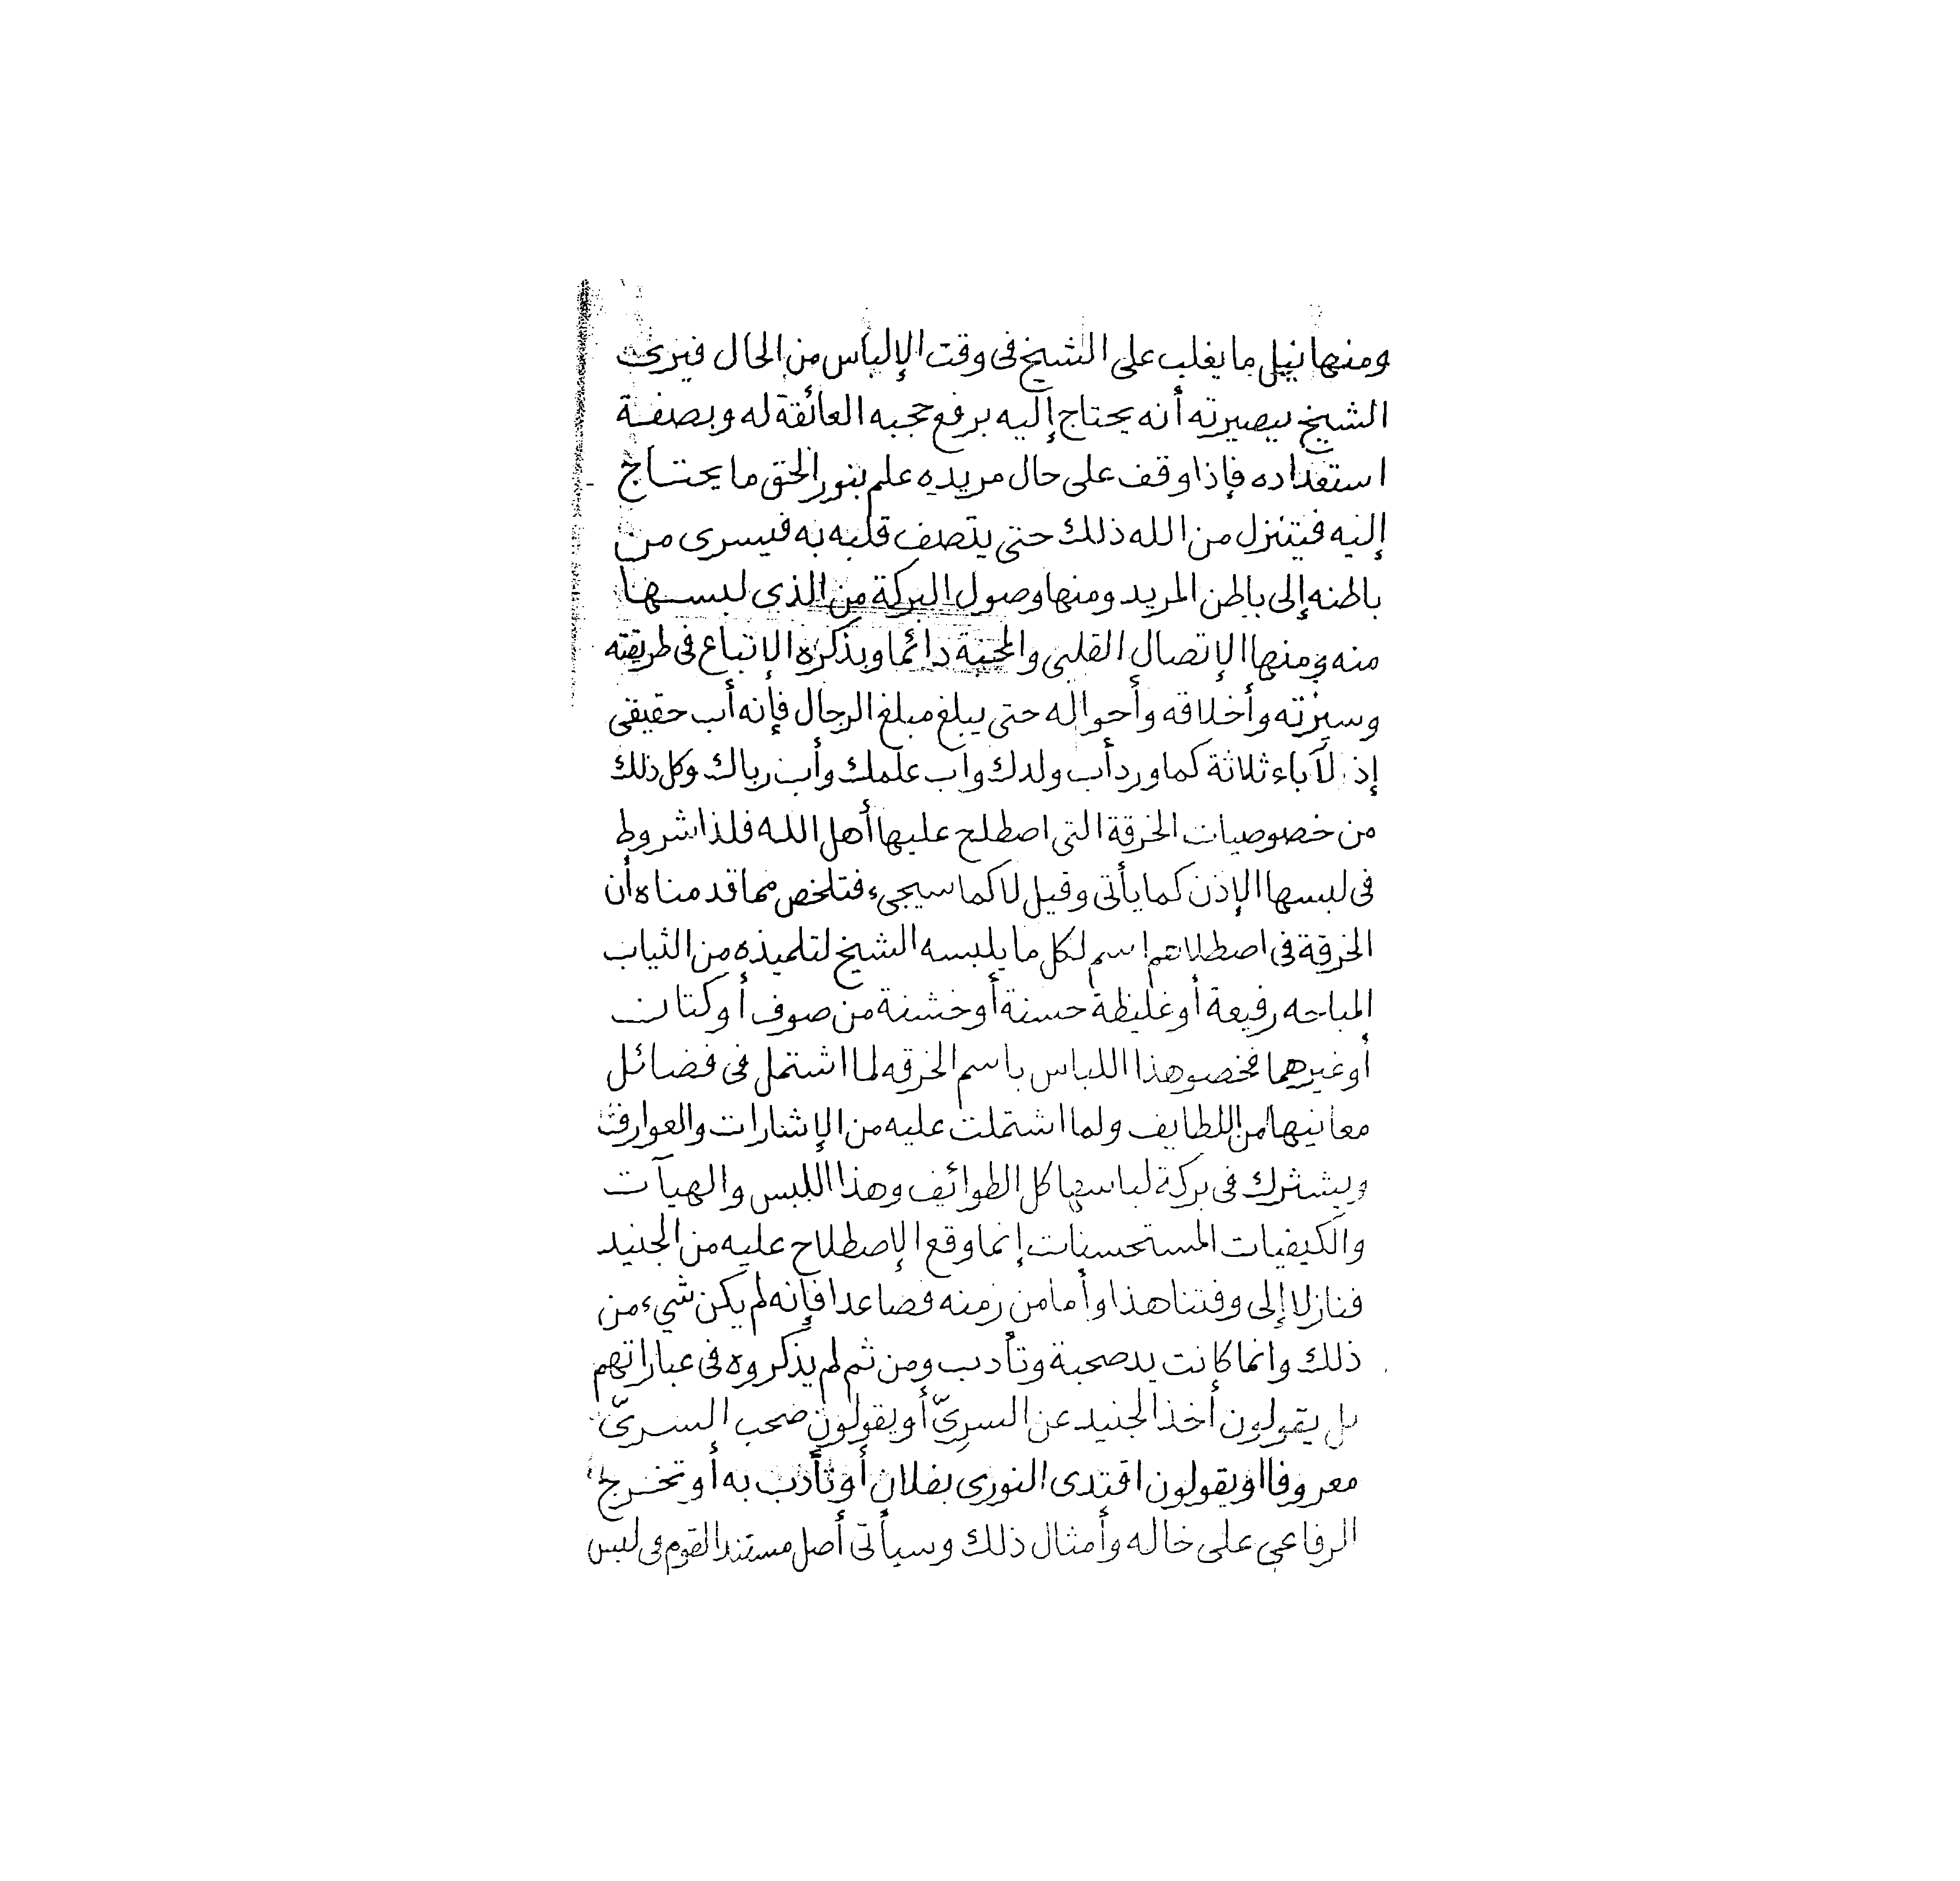 ومنها نيل ما يغلب على الشيخ فى وقت الإلباس من الحال فيرى
الشيخ ببصيرته أنه يحتاج إليه برفع حجبه العائقة له وبصفة
استعداده فإذا وقف على حال مريده علم بنور الحق ما يحتاج
إليه فيتنزل من الله ذلك حتى يتصف قلبه به فيسرى من
باطنه إلى باطن المريد ومنها وصول البركة من الذى لبسها
منه ومنها الإتصال القلبى والمحبة دائما وبذكره الإتباع فى طريقته
وسيرته وأخلاقه وأحواله حتى يبلغ مبلغ الرجال فإنه أب حقيقى
إذ لآباء ثلاثة كما ورد أب ولدك وأب علمك وأب رباك وكل ذلك
من خصوصيات الخرقة التى اصطلح عليها أهل الله فلذا شروط
فى لبسها الإذن كما يأتى وقيل لا كما سيجىء فتلخص مما قدمناه أن
الخرقة فى اصطلاحهم اسم لكل ما يلبسه الشيخ لتلميذه من الثياب
المباحه رفيعة أو غليظة حسنة أو خشنة من صوف أو كتان
أو غيرهما فخصوا هذا اللباس باسم الخرقه لما اشتمل فى فضائل
معانيها من اللطايف ولما اشتملت عليه من الإشارات والعوارف
ويشترك فى بركة لباسها كل الطوائف وهذا اللبس والهيآت
والكيفيات المستحسنات إنما وقع الإصطلاح عليه من الجنيد
فنازلا إلى وقتنا هذا وأما من زمنه فصاعدا فإنه لم يكن شيء من
ذلك وانما كانت يد صحبة وتأدب ومن ثم لم يذكروه فى عباراتهم
بل يقولون أخذ الجنيد عن السرِىّ أو يقولون صحب السرىّ
معروفا أو يقولون اقتدى النورى بفلان أو تأدب به أو تخرج
الرفاعي على خاله وأمثال ذلك وسيأتى أصل مستند القوم فى لبس